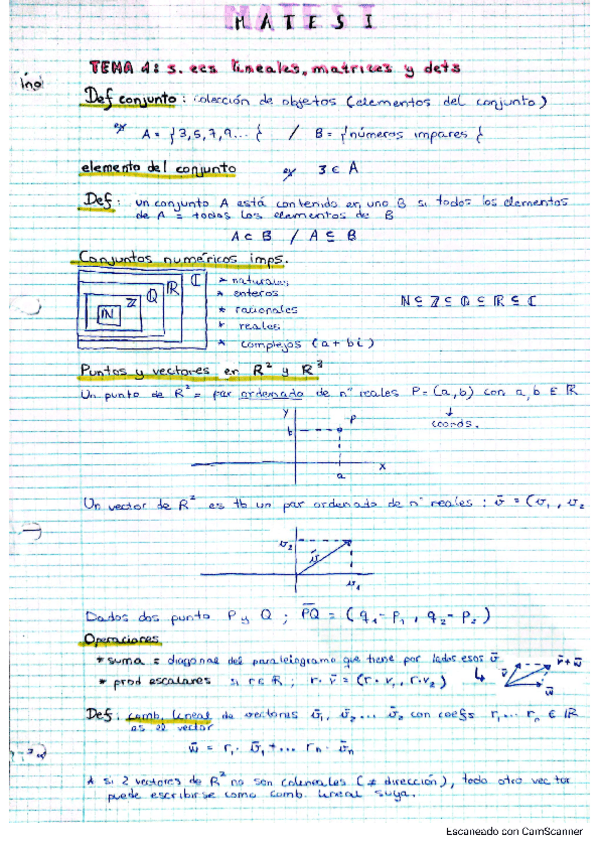 MATES I
TEMA 1: s. ecs lineales, matrices y dets
Def conjunto: colección de objetos (elementos del conjunto)
ex A = {3,5,7,9...{ / B = {números impares {
elemento del conjunto ex 3 ∈ A
Def: un conjunto A está contenido en uno B si todos los elementos
de A = todos los elementos de B
A ⊂ B / A ⊆ B
Conjuntos numéricos imps.
N Z Q R C
* naturales
* enteros
* racionales
* reales
* complejos (a + bi)
N ⊆ Z ⊆ Q ⊆ R ⊆ C
Puntos y vectores en R² y R³
Un punto de R² = par ordenado de nº reales P = (a,b) con a,b ∈ R
↓
coords.
y
b P
x
a
Un vector de R² es tb un par ordenado de nº reales : v̄ = (v₁, v₂
v₂ v̄
v₁
Dados dos punto P y Q ; PQ = (q₁-p₁, q₂-p₂)
Operaciones
* suma = diagonal del paralelogramo que tiene por lados esos v̄
v̄ v̄+w̄ w̄
* prod escalares si r ∈ R ; r·v̄ = (r·v₁, r·v₂)
Def: comb. lineal de vectores v̄₁, v̄₂... con coefs r₁... rₙ ∈ R
es el vector
w̄ = r₁·v̄₁+... rₙ·v̄ₙ
A si 2 vectores de R² no son colineales (≠ dirección), todo otro vector
puede escribirse como comb. lineal suya.
Escaneado con CamScanner